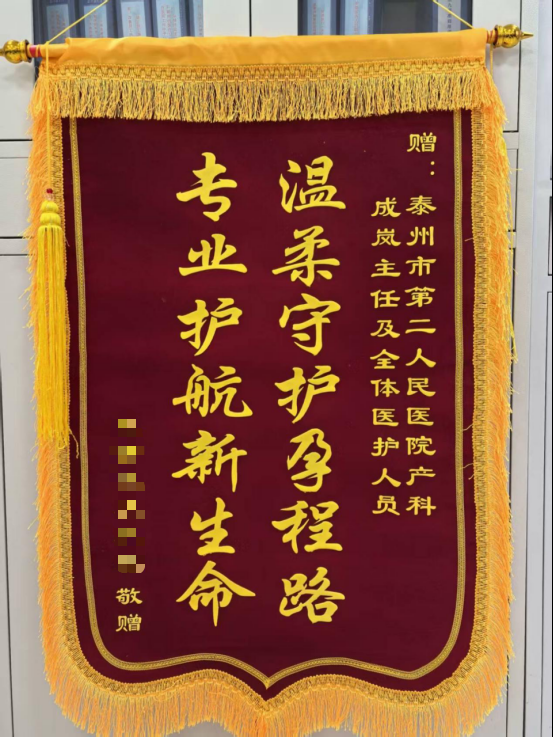 赠：泰州市第二人民医院产科
成岚主任及全体医护人员
温柔守护孕程路
专业护航新生命
敬赠